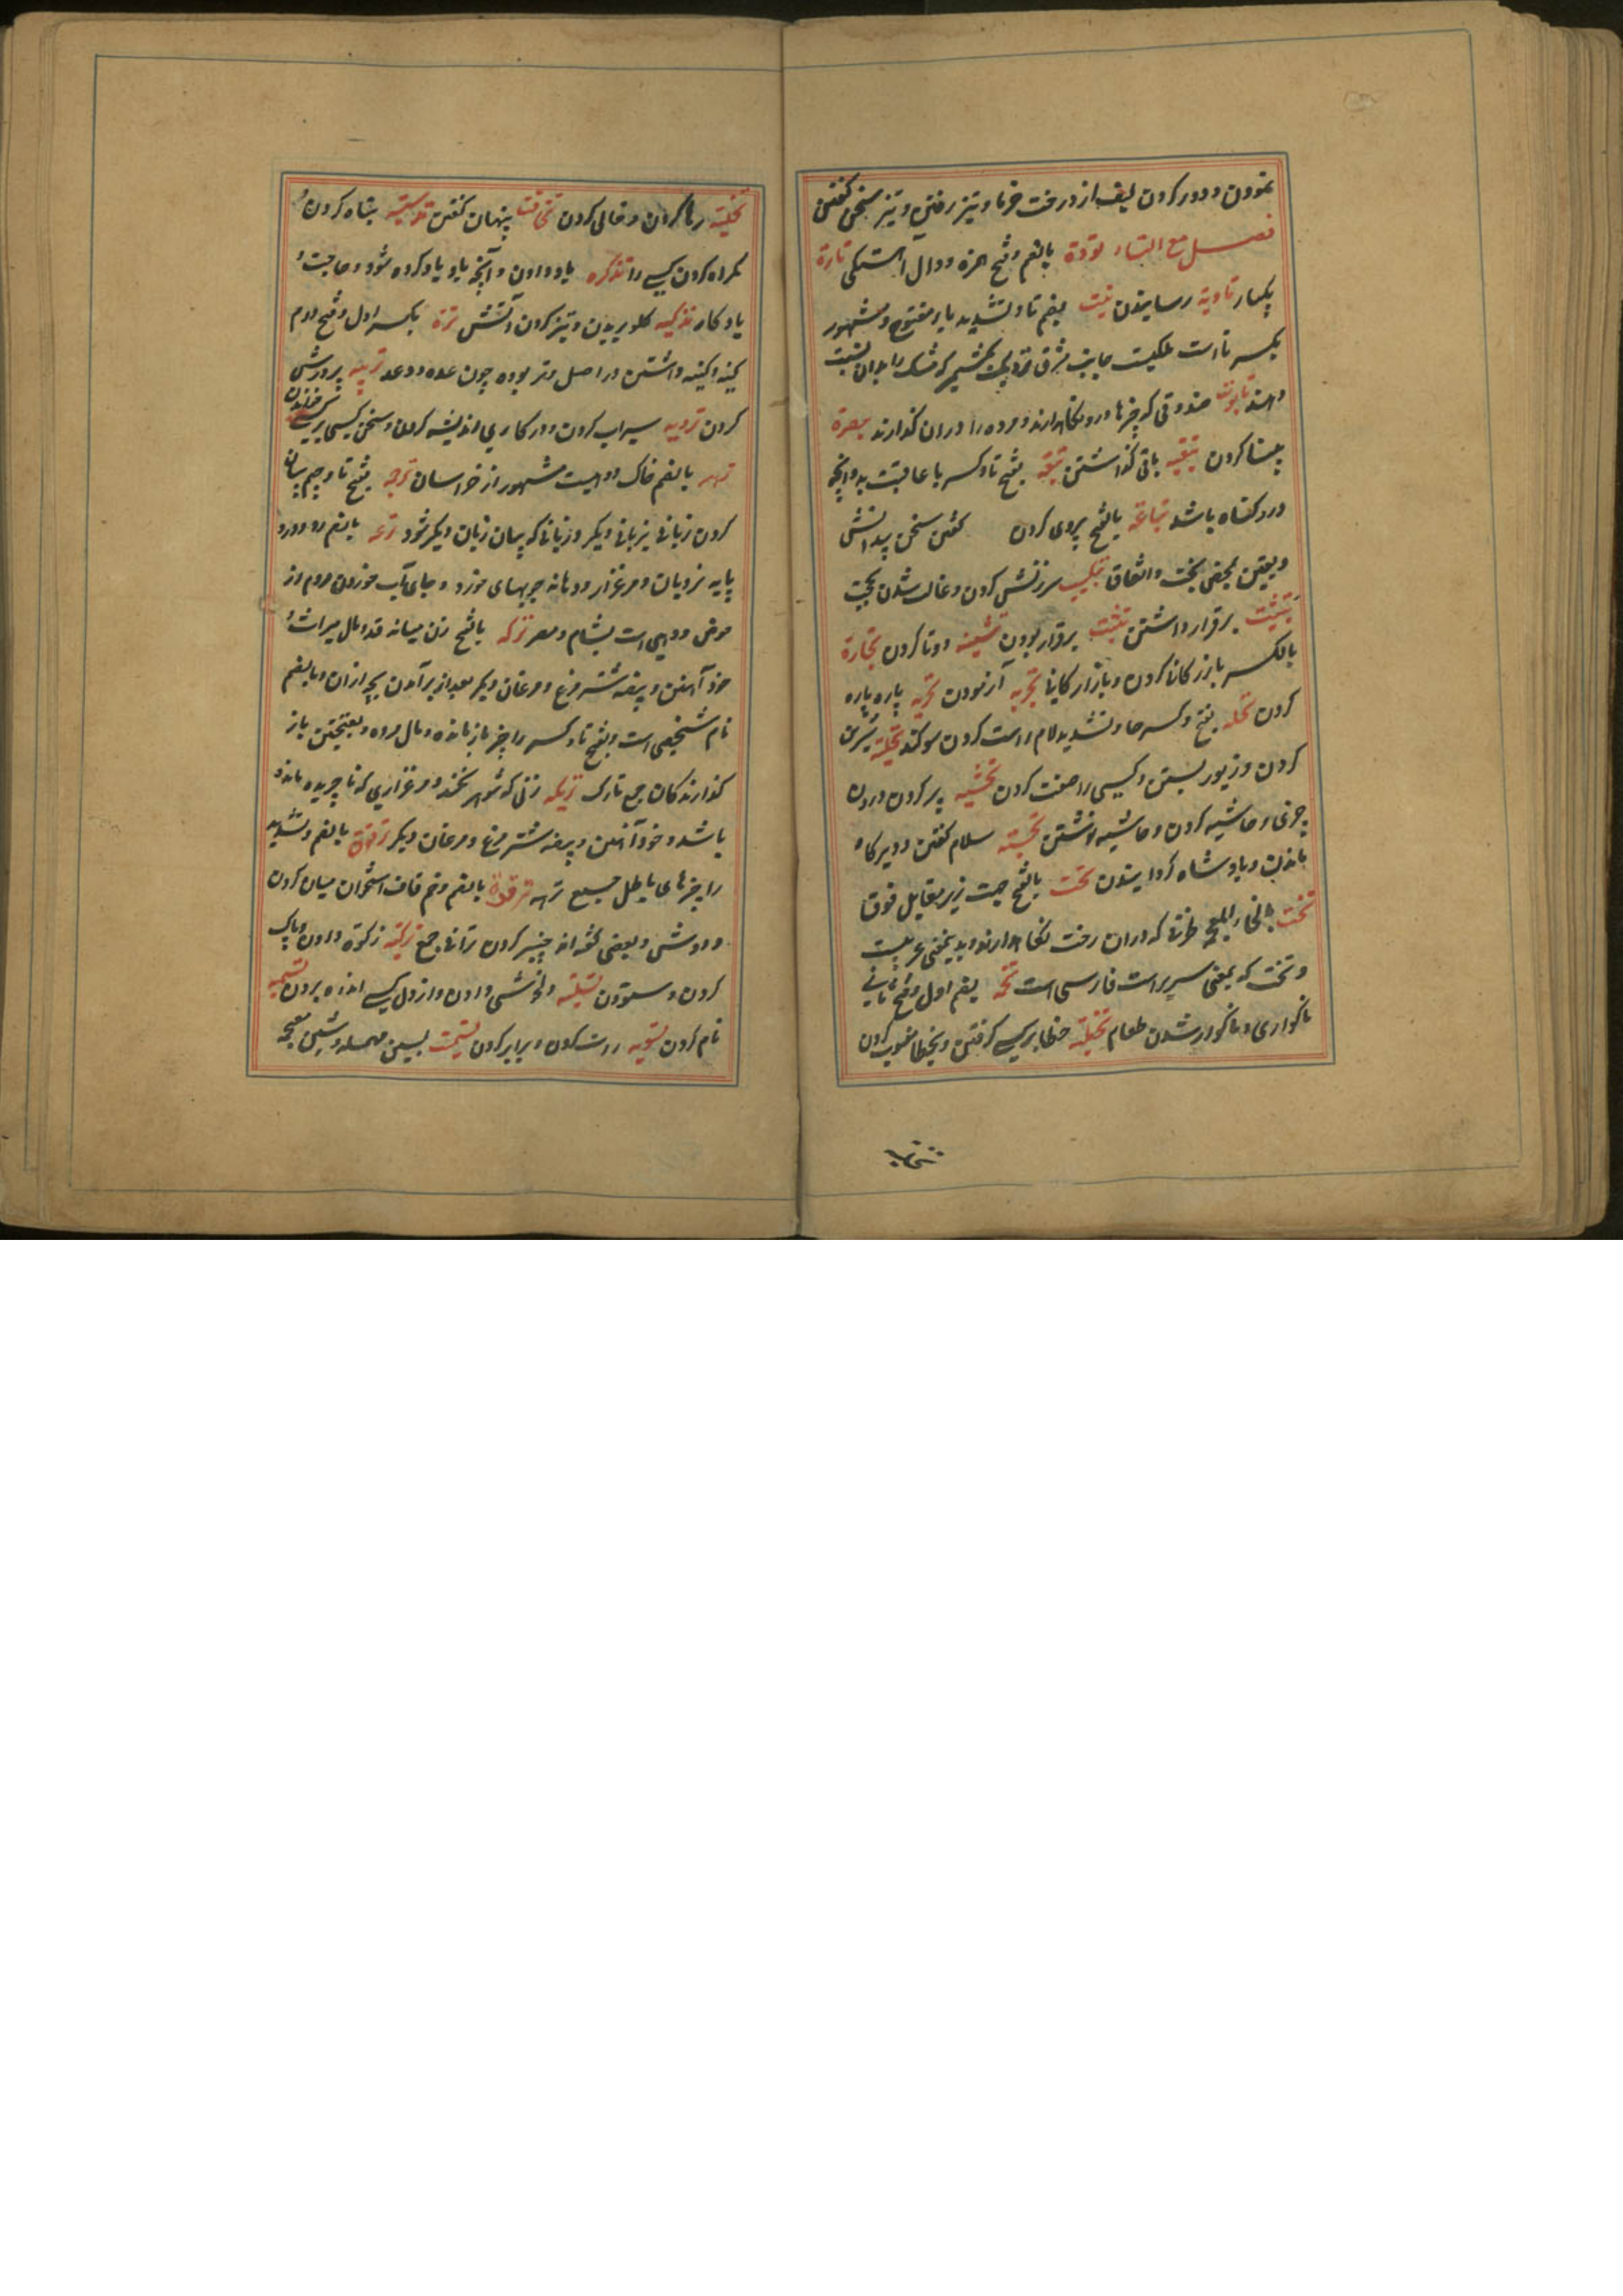 نمودن و دور کردن لیف از درخت خرما و تیز رفتن و تیز سخن گفتن
فصل مع التاء تؤدة بالضم و فتح همزه و دال آهستگی تارة
یکبار تادیة رسانیدن تبت بضم تا و تشدید باء مفتوح و مشهور
بکسر تا است ملکیت جانب شرق نزدیک کشمیر که مشک را بدان نسبت
دهند تابوت صندوقی که چیزها درو نگاهدارند و مرده را دران گذارند تبصرة
بینا کردن تبقیه باقی گذاشتن تبعه بفتح تا و کسر با عاقبت بد و آنچه
در و گناه باشد تباعة بالفتح پیروی کردن گفتن سخن بیدانش
و یقین بمعنی بخت و اتفاق تبکیت سرزنش کردن و غالب شدن بحجت
تثبیت برقرار داشتن تثبت برقرار بودن تثنیه دوتا کردن تجارة
بالکسر بازرکانی کردن و بازارکانی تجربه آزمودن تجزیه پاره پاره
کردن تحله بفتح و کسر حا و تشدید لام راست کردن سوگند تحلیة شیرین
کردن و زیور بستن و کسی را صفت کردن تحشیه پر کردن درون
چیزی و حاشیه کردن و حاشیه نوشتن تحیته سلام گفتن و دیرگاه
ماندن و پادشاه گردانیدن تحت بالفتح جهت زیر مقابل فوق
تخت بالخاء المعجمه ظرفی که دران رخت نگاهدارند و بدینمعنی عربیست
و تخت که بمعنی سریر است فارسی است تخمه بضم اول و فتح ثانی
ناگواری و ناگوار شدن طعام تخطیة خطا بر کسی گرفتن و بخطا منسوب کردن
تخلیة رها کردن و خالی کردن تخافت پنهان گفتن تدسیه تباه کردن و
گمراه کردن کسی را تذکره یاد دادن و آنچه باو یاد کرده شود و حاجت و
یادگار تذکیه گلو بریدن و تیز کردن آتش ترة بکسر اول و فتح دوم
کینه و کینه داشتن در اصل وتر بوده چون عده و وعد تربیه پرورش
کردن ترویه سیراب کردن و در کاری اندیشه کردن و سخن کسی بر کسی خواندن
تربه بالضم خاک و دهیست مشهور از خراسان ترجمه بفتح تا و جیم بیان
کردن زبانی بزبانی دیگر و زبانی که بیان زبان دیگر شود ترعه بالضم در و درد
پایه نردبان و مرغزار و دهانه جویهای خورد و جای آب خوردن مردم از
حوض و دهی است بشام و مصر ترکه بالفتح زن میانه قد و مال میراث و
خود آهنین و بیضه شترمرغ و مرغان دیگر بعد از برآمدن بچه ازان و بالضم
نام شخصی است و بفتح تا و کسر را چیز بازمانده و مال مرده و بفتحتین باز
گذارندگان جمع تارک تریکه زنی که شوهر نکند و مرغزاری که ناچریده ماند
باشد و خود آهنین و بیضه شترمرغ و مرغان دیگر ترهة بالضم و تشدید
را چیزهای باطل جمع ترهه ترقوة بالضم و ضم قاف استخوان میان گردن
و دوش و بعضی گفته اند چنبر گردن تراقی جمع تزکیه زکوة دادن و پاک
کردن و ستودن تسلیته دلخوشی دادن و از دل کسی اندوه بردن تسمیه
نام کردن تسویه راست کردن و برابر کردن تشمیت بسین مهمله و شین معجمه